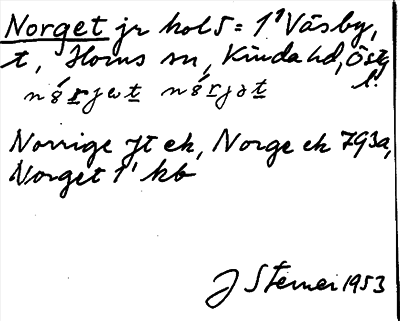 Norget jr hol 5 = 1¹ Väsby,
t, Horns sn, Kinda hd, Östg
l.
Norrige jt ek, Norge ek 793a,
Norget 1¹ kb
J Sterner 1953